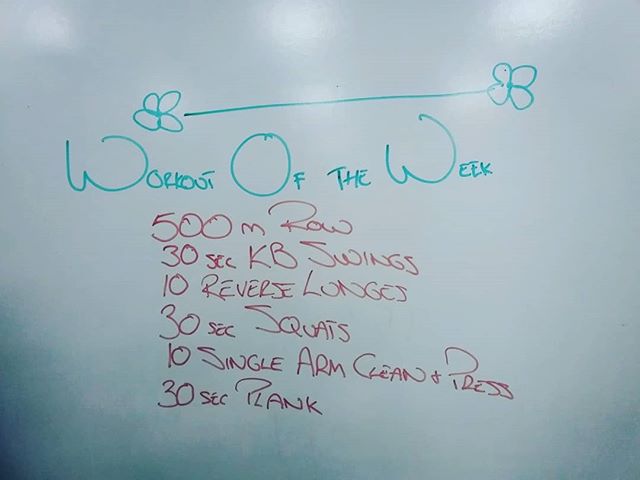 Workout Of The Week
500m Row
30 sec KB Swings
10 Reverse Lunges
30 sec Squats
10 Single Arm Clean + Press
30 sec Plank